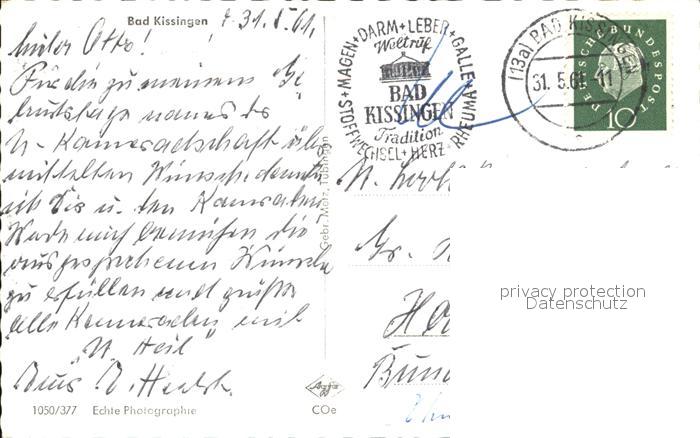 Bad Kissingen
31.5.61.
lieber Otto!
Für die zu meinem Ge
burtstage namens der
Kameradschaft über
mittelten Wünsche danke
ich Dir u. den Kameraden
Werde mich bemühen die
ausgesprochenen Wünsche
zu erfüllen und grüße
alle Kameraden mit
Heil"
1050/377 Echte Photographie
Gebr. Metz, Tübingen
Agfa
COe
STOFFWECHSEL+MAGEN+DARM+LEBER+GALLE+RHEUMA+HERZ
Weltruf
BAD
KISSINGEN
Tradition
(13a) BAD KISSINGEN
31. 5. 61-11
DEUTSCHE BUNDESPOST
10
privacy protection
Datenschutz